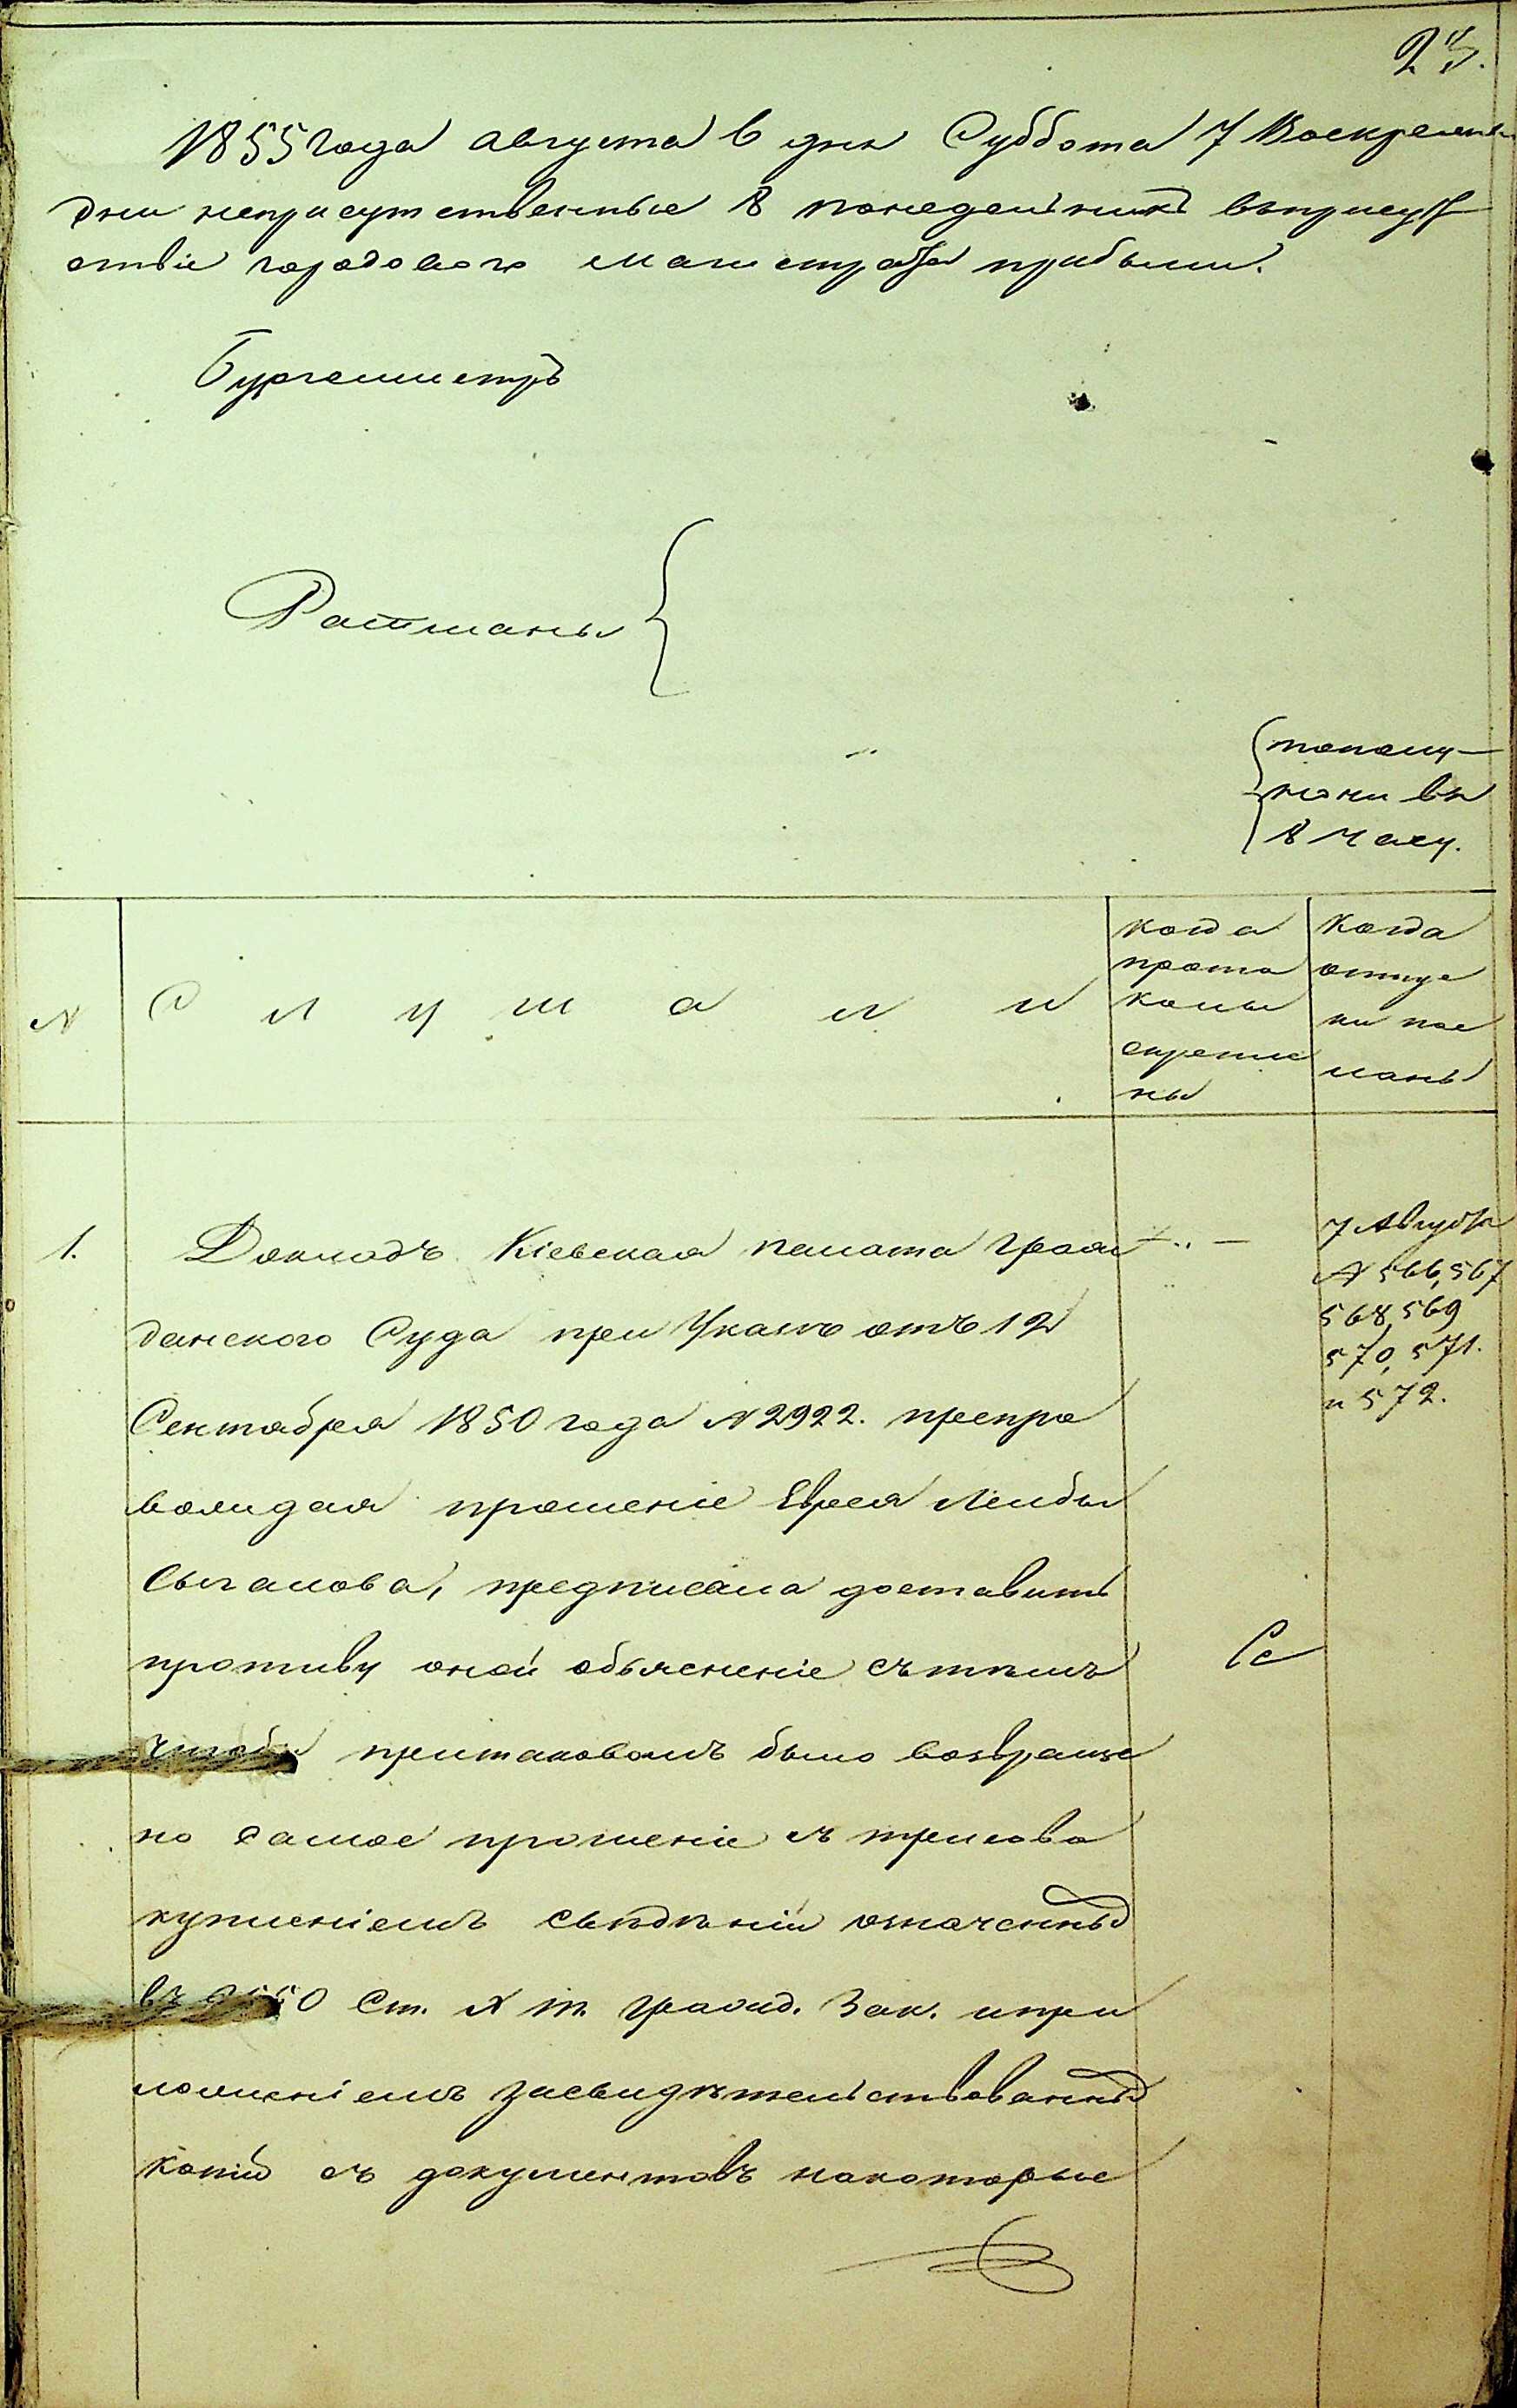 23.
1855 года августа 6 дня Суббота 7 Воскресенье
дни неприсутственные 8 понедельникъ въ присут
ствіе городового магистрата прибыли.
Бургомистръ
Ратманы
пополу-
ночи въ
8 часу.
№
Слушали
когда
прото
колы
скрепле
ны
Когда
отпус
ки пос
ланы
1.
Докладъ. Кіевская палата Граж
данского Суда при Указѣ отъ 12
Сентября 1850 года № 2922. препро
вождая прошеніе Еврея Лейбы
предписала доставить
противу оной объясненіе съ тѣмъ
чтобы притаковомъ было возвраще
но самое прошеніе съ присово
купленіемъ свѣдѣній означенныхъ
въ 50 Ст. X т. Гражд. Зак. и при
ложеніемъ засвидѣтельствованныхъ
копій съ документовъ накоторые
7 Августа
№ 566, 567
568, 569
570, 571.
и 572.